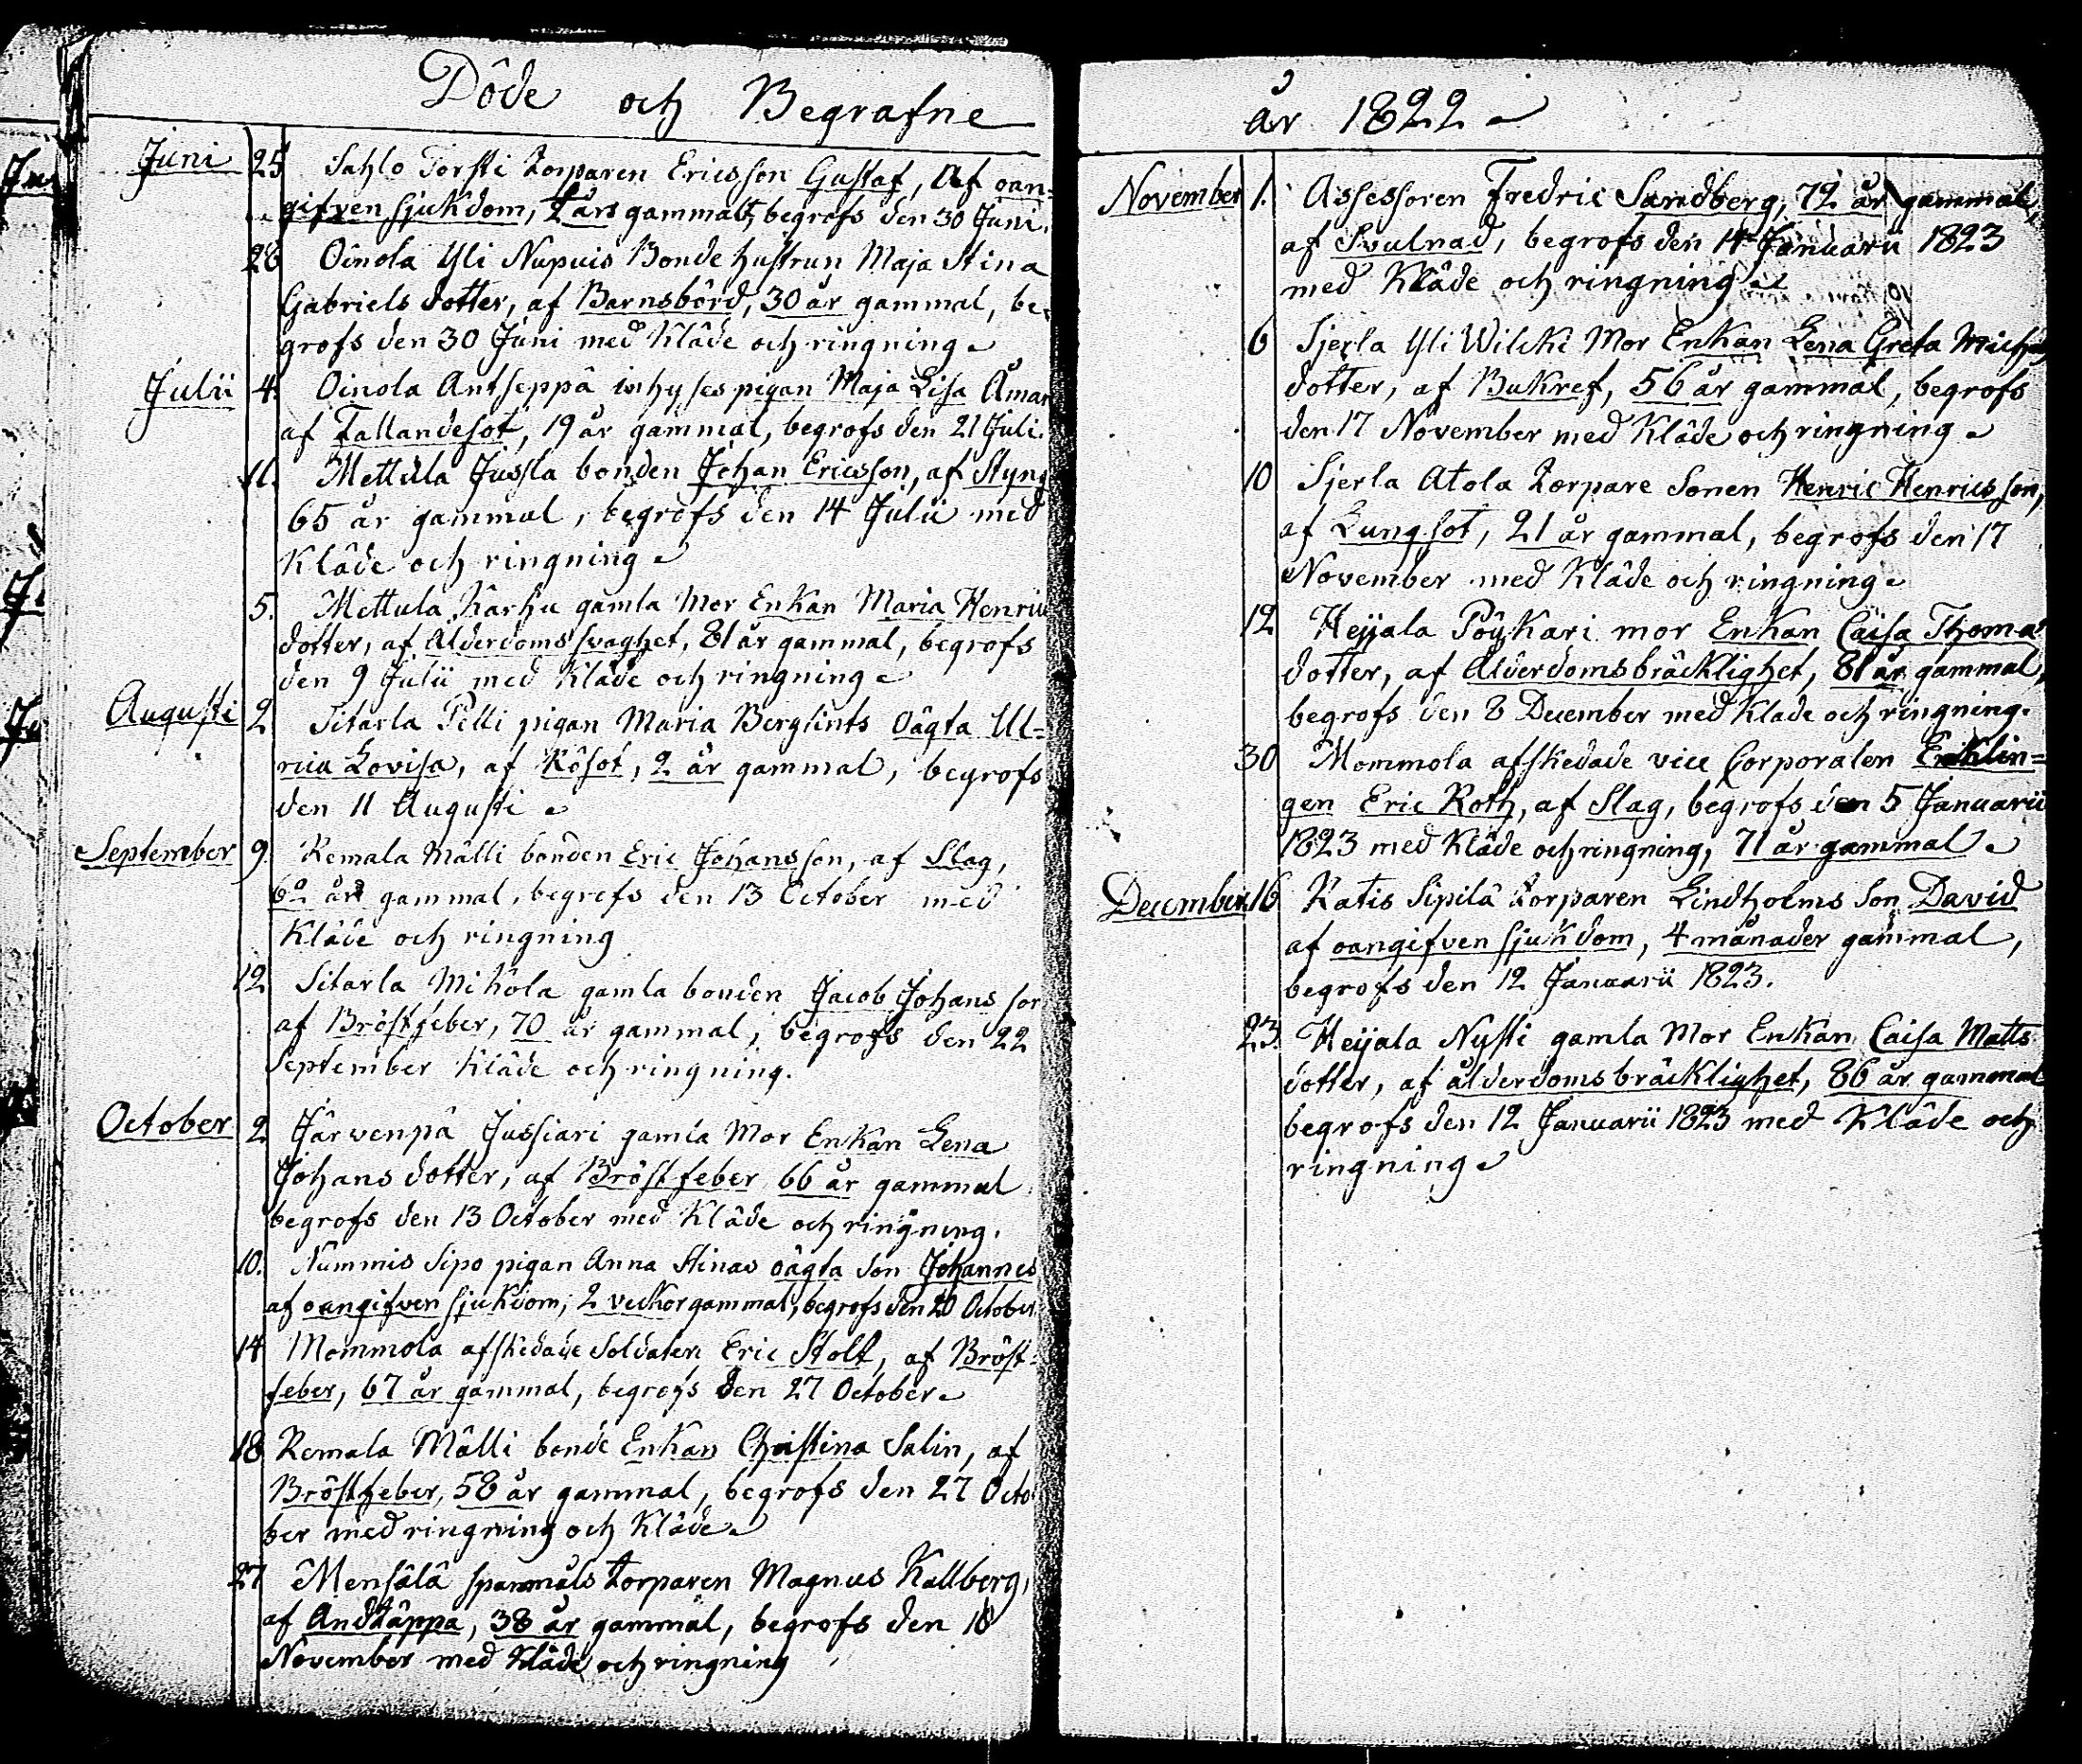 Döde och Begrafne
Juni 25 Sahlo Torsti Torparen Ericsson Gustaf, Af oan=
gifven sjukdom, 2 års gammalt, begrofs den 30 Juni.
28 Oinola Yli Nupuis Bonde hustrun Maja Stina
Gabriels dotter, af Barnsbörd, 30 år gammal, be,
grofs den 30 Juni med Kläde och ringning
Julii 4. Oinola Antseppä inhyses pigan Maja Lisa Åman
af Fallandesot, 19 år gammal, begrofs den 21 Juli.
11. Mettula Jussla bonden Johan Ericsson, af Styng
65 år gammal, begrofs den 14 Julii med
Kläde och ringning
5. Mettula Karhu gamla Mor Enkan Maria Henric
dotter, af Alderdoms svaghet, 81 år gammal, begrofs
den 9 Julii med Kläde och ringning
Augusti 2 Sitarla Pelli pigan Maria Berglints oägta Ul=
rica Lovisa, af Rösot, 2 år gammal, begrofs
den 11 Augusti
September 9. Remala Mälli bonden Eric Johansson, af Slag,
62 år gammal, begrofs den 13 October med
Kläde och ringning
12 Sitarla Miköla gamla bonden Jacob Johans son
af Bröstfeber, 70 år gammal, begrofs den 22
September Kläde och ringning.
October 2 Järwenpä Jussiari gamla Mor Enkan Lena
Johans dotter, af Bröstfeber 66 år gammal
begrofs den 13 October med Kläde och ringning.
10. Nummis Sipo pigan Anna Stinas oägta Son Johannes
af oangifven sjukdom, 2 veckor gammal, begrofs den 20 October
14 Mommola afskedade Soldaten Eric Stolt, af Bröst=
feber, 67 år gammal, begrofs den 27 October
18 Remala Mälli bonde Enkan Christina Salin, af
Bröstfeber, 58 år gammal, begrofs den 27 Octo
ber med ringning och Kläde
27 Mensälä spanmåls torparen Magnus Kallberg,
af Andtäppa, 38 år gammal, begrofs den 18
November med Kläde och ringning
år 1822
November 1. Assessoren Fredric Sandberg, 72 år gammal,
af Svulnad, begrofs den 14 Januarii 1823
med Kläde och ringning
6 Sjerla Yli Wilcki Mor Enkan Lena Greta Michels
dotter, af Bukref, 56 år gammal, begrofs
den 17 November med Kläde och ringning
10 Sjerla Atola Torpare Sonen Henric Henricsson,
af Lungsot, 21 år gammal, begrofs den 17
November med Kläde och ringning
12 Heijala Pöykari mor Enkan Caisa Thomas
dotter, af Alderdomsbräcklighet, 81 år gammal,
begrofs den 8 December med Kläde och ringning.
30 Mommola afskedade vice Corporalen Enklin=
gen Eric Roth, af Slag, begrofs den 5 Januarii
1823 med Kläde och ringning, 71 år gammal
December 16 Katis Sipilä Torparen Lindholms Son David
af oangifven sjukdom, 4 månader gammal,
begrofs den 12 Januarii 1823.
23. Heijala Nysti gamla Mor Enkan Caisa Matts
dotter, af ålderdoms bräcklighet, 86 år gammal
begrofs den 12 Januarii 1823 med Kläde och
ringning